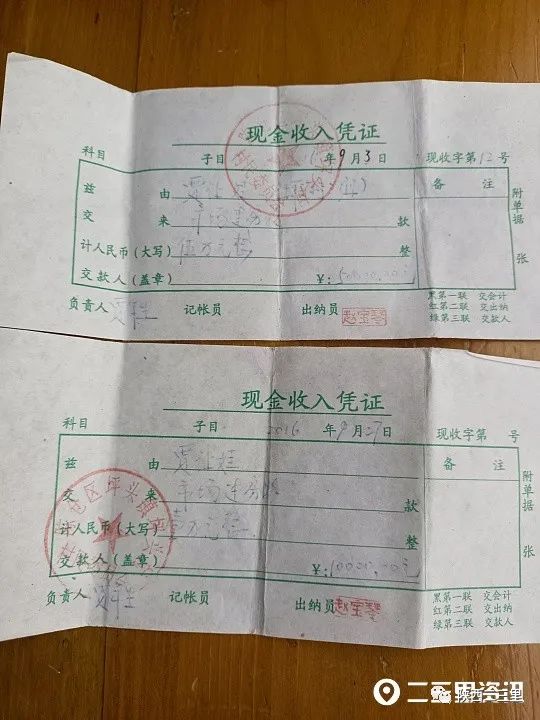 现金收入凭证
科目 子目 年9月3日 现收字第12号
兹 由 备 注
交 来 款
计人民币(大写)伍万元整 整
交款人(盖章) ¥:50000.00元
附单据 张
负责人 记帐员 出纳员 赵宝琴
黑第一联 交会计
红第二联 交出纳
绿第三联 交款人
现金收入凭证
科目 子目 2016年9月27日 现收字第 号
兹 由 备 注
交 来 款
计人民币(大写)壹万元整 整
交款人(盖章) ¥:10000.00元
附单据 张
负责人 记帐员 出纳员 赵宝琴
黑第一联 交会计
红第二联 交出纳
绿第三联 交款人
二三里资讯